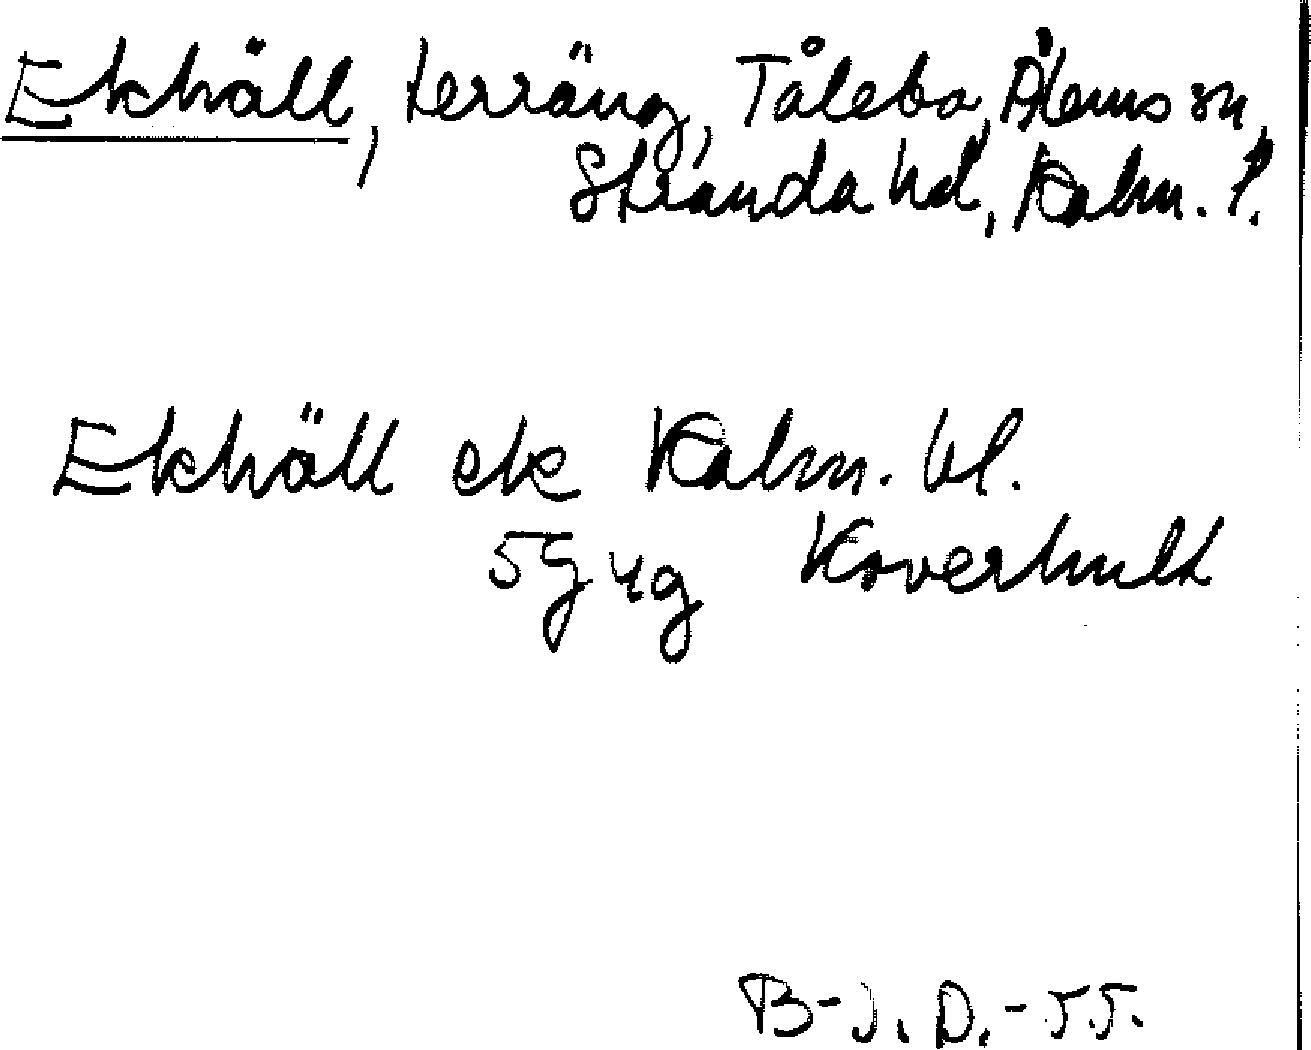 Ekhäll, terräng, Tålebo, Ålems sn,
Stranda hd, Kalm. l.
Ekhäll ek Kalm. bl.
5g 4g Koverhult
B-J. D.-55.